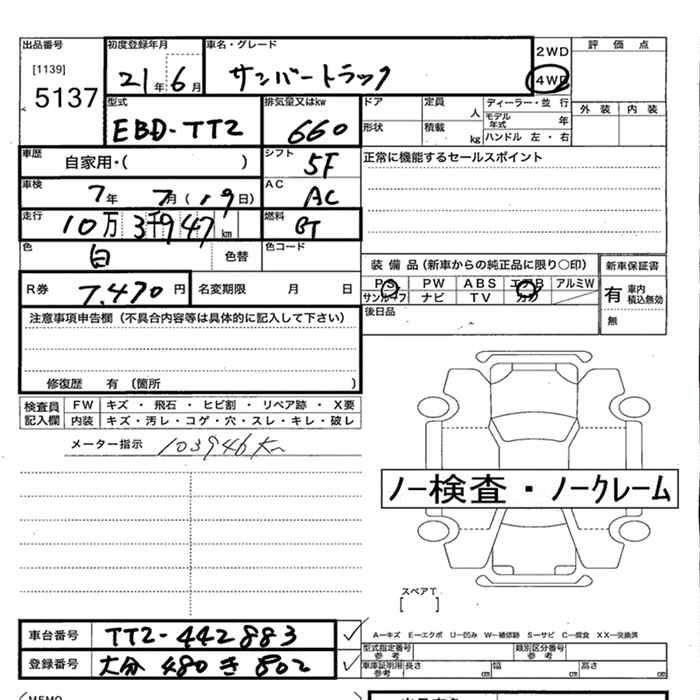 出品番号 初度登録年月 車名・グレード 2WD 評価点
[1139] 5137 21年6月 サンバートラック 4WD 外装 内装
型式 排気量又はkw ドア 定員 人 ディーラー・並行
EBD-TT2 660 形状 積載 kg モデル年式 年
ハンドル 左・右
車歴 自家用・( ) シフト 5F 正常に機能するセールスポイント
車検 7年 7月(19日) AC AC
走行 10万3千947km 燃料
色 白 色替 色コード
装備品(新車からの純正品に限り○印) 新車保証書
R券 7,470円 名変期限 月 日 PS PW ABS エアB アルミW 有 車内積込無効
サンルーフ ナビ TV カワ 無
注意事項申告欄(不具合内容等は具体的に記入して下さい) 後日品
修復歴 有 (箇所 )
検査員記入欄 FW キズ・飛石・ヒビ割・リペア跡・X要
内装 キズ・汚レ・コゲ・穴・スレ・キレ・破レ
メーター指示 103946km
ノー検査・ノークレーム
スペアT
[ ]
車台番号 TT2-442883 ✓ A―キズ E―エクボ U―凹み W―補修跡 S―サビ C―腐食 XX―交換済
型式指定番号 参考 類別区分番号 参考
登録番号 大分 480 き 802 ✓ 車庫証明用 参考 長さ cm 幅 cm 高さ cm
MEMO